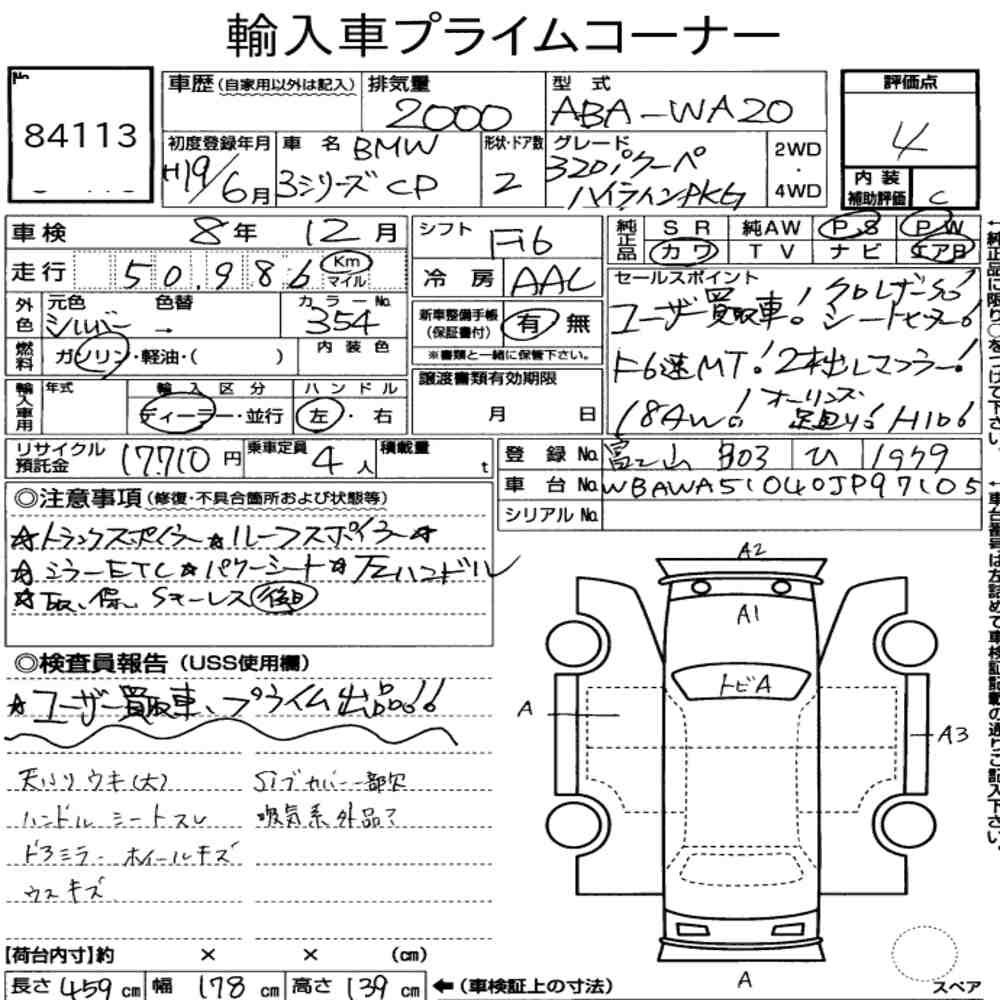 輸入車プライムコーナー
No.
84113
車歴(自家用以外は記入)
排気量
2000
型式
ABA-WA20
評価点
4
初度登録年月
H19/6月
車名 BMW
3シリーズ CP
形状・ドア数
2
グレード
320iクーペ
ハイラインPKG
2WD
・
4WD
内装
補助評価
C
車検 8年 12月
シフト F16
純正品
SR 純AW PS PW
カワ TV ナビ エアB
走行 50,986 Km
マイル
冷房 AAC
セールスポイント
ユーザー買取車! クロレザーSパ
シートヒーター!
F6速MT! 2本出しマフラー!
18AW! オーリンズ
足回り! H106
外色
元色 色替 カラーNo.
シルバー → 354
新車整備手帳
(保証書付)
有 無
※書類と一緒に保管下さい。
燃料
ガソリン・軽油・( )
内装色
輸入車用
年式
輸入区分
ディーラー・並行
ハンドル
左・右
譲渡書類有効期限
月 日
リサイクル
預託金
17710円
乗車定員
4人
積載量
t
登録No. 富士山 303 ひ 1979
車台No. WBAWA51040JP97105
シリアルNo.
◎注意事項(修復・不具合箇所および状態等)
☆トランクスポイラー☆ルーフスポイラー☆
☆ミラーETC☆パワーシート☆左ハンドル
☆取、保、Sキーレス 後日
◎検査員報告(USS使用欄)
★ユーザー買取車、プライム出品!!
天ハリウキ(大)
ハンドル シートスレ
ドアミラー ホイールキズ
ウスキズ
Siブカバー一部欠
吸気系外品?
A2
A1
トビA
A
A3
A
スペア
【荷台内寸】約 × × (cm)
長さ 459 cm 幅 178 cm 高さ 139 cm
←(車検証上の寸法)
←純正品に限り○をつけて下さい。
←車台番号は左詰めで車検証記載の通りご記入下さい。